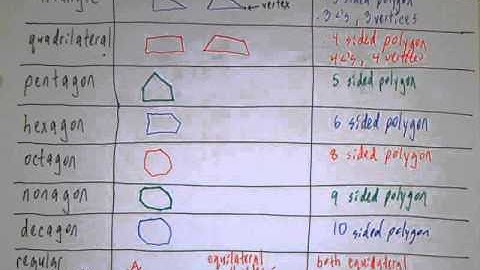 triangle
vertex
3 sided polygon
3 <'s, 3 vertices
quadrilateral
4 sided polygon
4 <'s, 4 vertices
pentagon
5 sided polygon
hexagon
6 sided polygon
octagon
8 sided polygon
nonagon
9 sided polygon
decagon
10 sided polygon
regular
equilateral
both equilateral